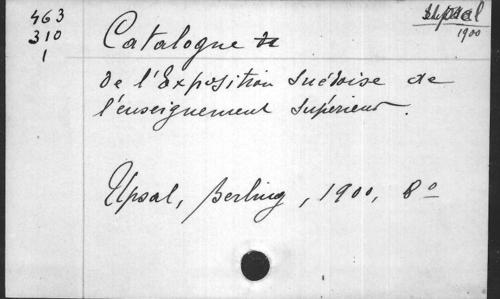 463
310
1
Upsal
1900
Catalogue
de l'Exposition Suédoise de
l'enseignement Supérieur.
Upsal, Berling, 1900, 8º